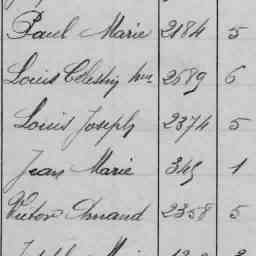 Paul Marie 2184 5
Louis Célestin 2689 6
Louis Joseph 2374 5
Jean Marie 345 1
Victor Amand 2358 5